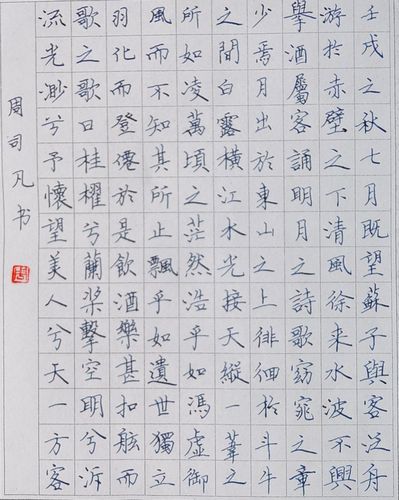 壬戌之秋七月既望蘇子與客泛舟
游於赤壁之下清風徐来水波不興
舉酒屬客誦明月之詩歌窈窕之章
少焉月出於東山之上徘徊於斗牛
之間白露橫江水光接天縱一葦之
所如凌萬頃之茫然浩乎如馮虛御
風而不知其所止飄乎如遺世獨立
羽化而登僊於是飲酒樂甚扣舷而
歌之歌曰桂櫂兮蘭槳擊空明兮泝
流光渺兮予懷望美人兮天一方客
周司凡书